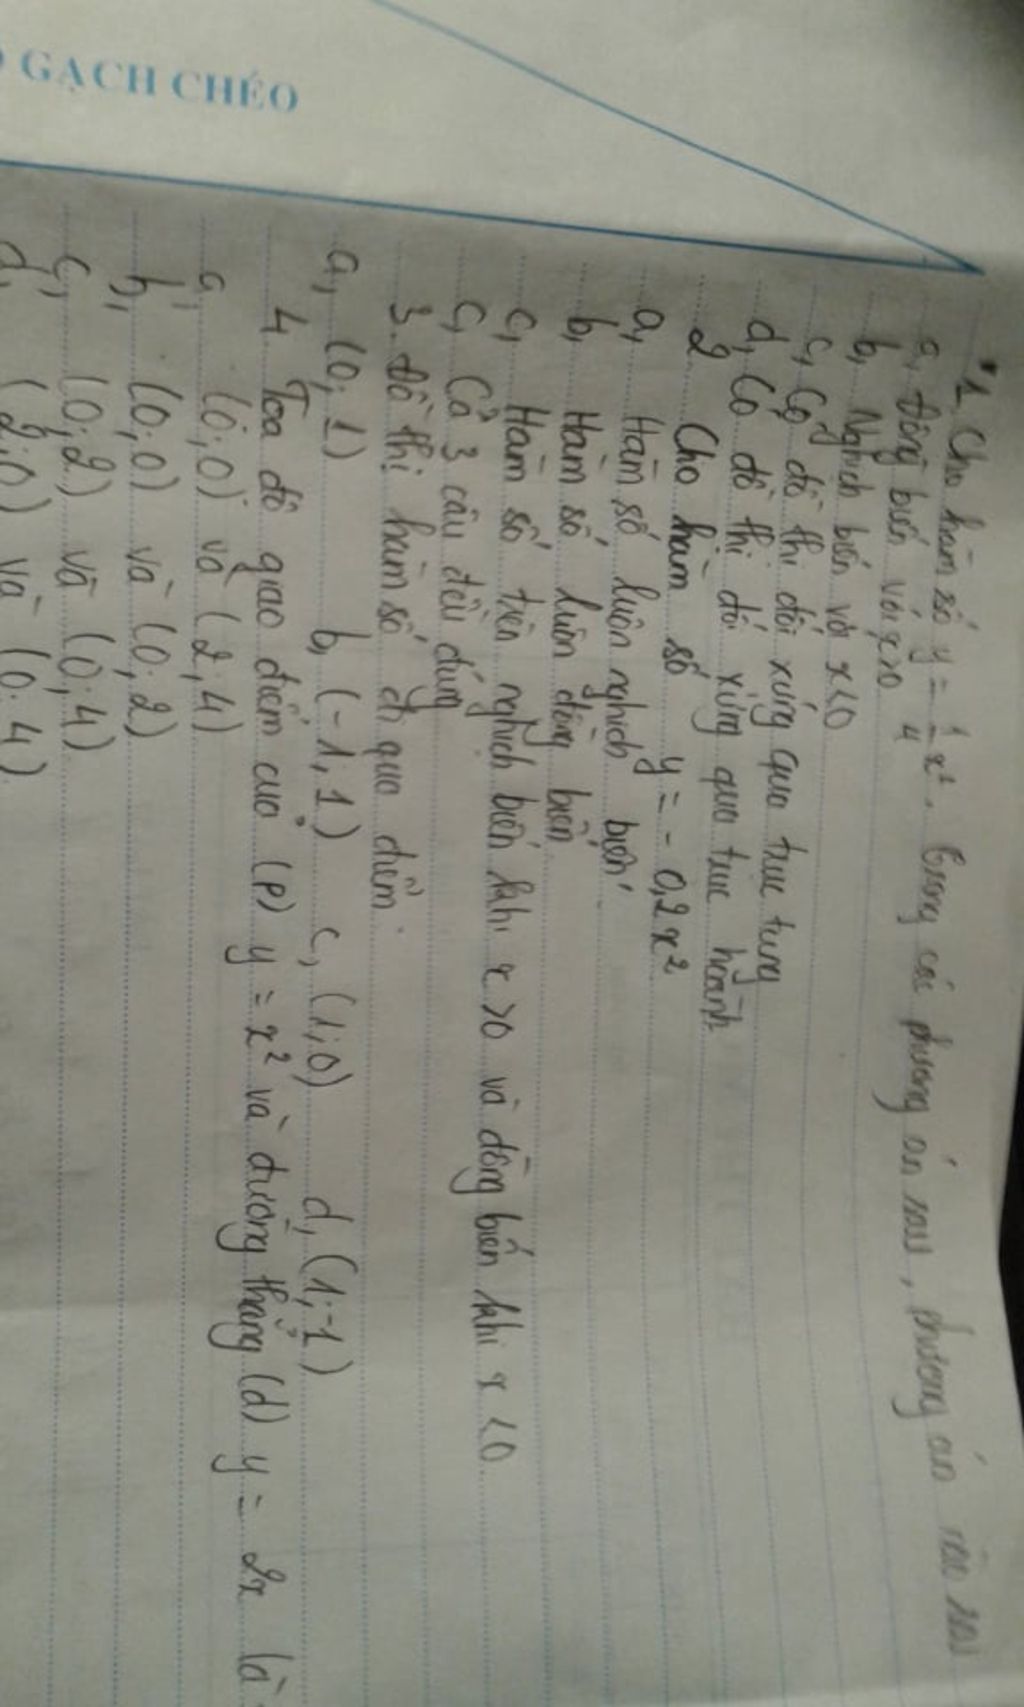 GẠCH CHÉO
1. Cho hàm số y = 1/4 x². Trong các phương án sau, phương án nào sai
a, Đồng biến với x>0
b, Nghịch biến với x<0
c, Có đồ thị đối xứng qua trục tung
d, Có đồ thị đối xứng qua trục hoành
2. Cho hàm số y = - 0,2x²
a, Hàm số luôn nghịch biến
b, Hàm số luôn đồng biến
c, Hàm số trên nghịch biến khi x >0 và đồng biến khi x <0
c, Cả 3 câu đều đúng
3. Đồ thị hàm số đi qua điểm.
a, (0; 1) b, (-1, 1) c, (1; 0) d, (1; -1)
4 Toạ độ giao điểm của (P) y = x² và đường thẳng (d) y = 2x là
a, (0; 0) và (2, 4)
b, (0; 0) và (0; 2)
c, (0; 2) và (0; 4)
d, (2; 0) và (0; 4)